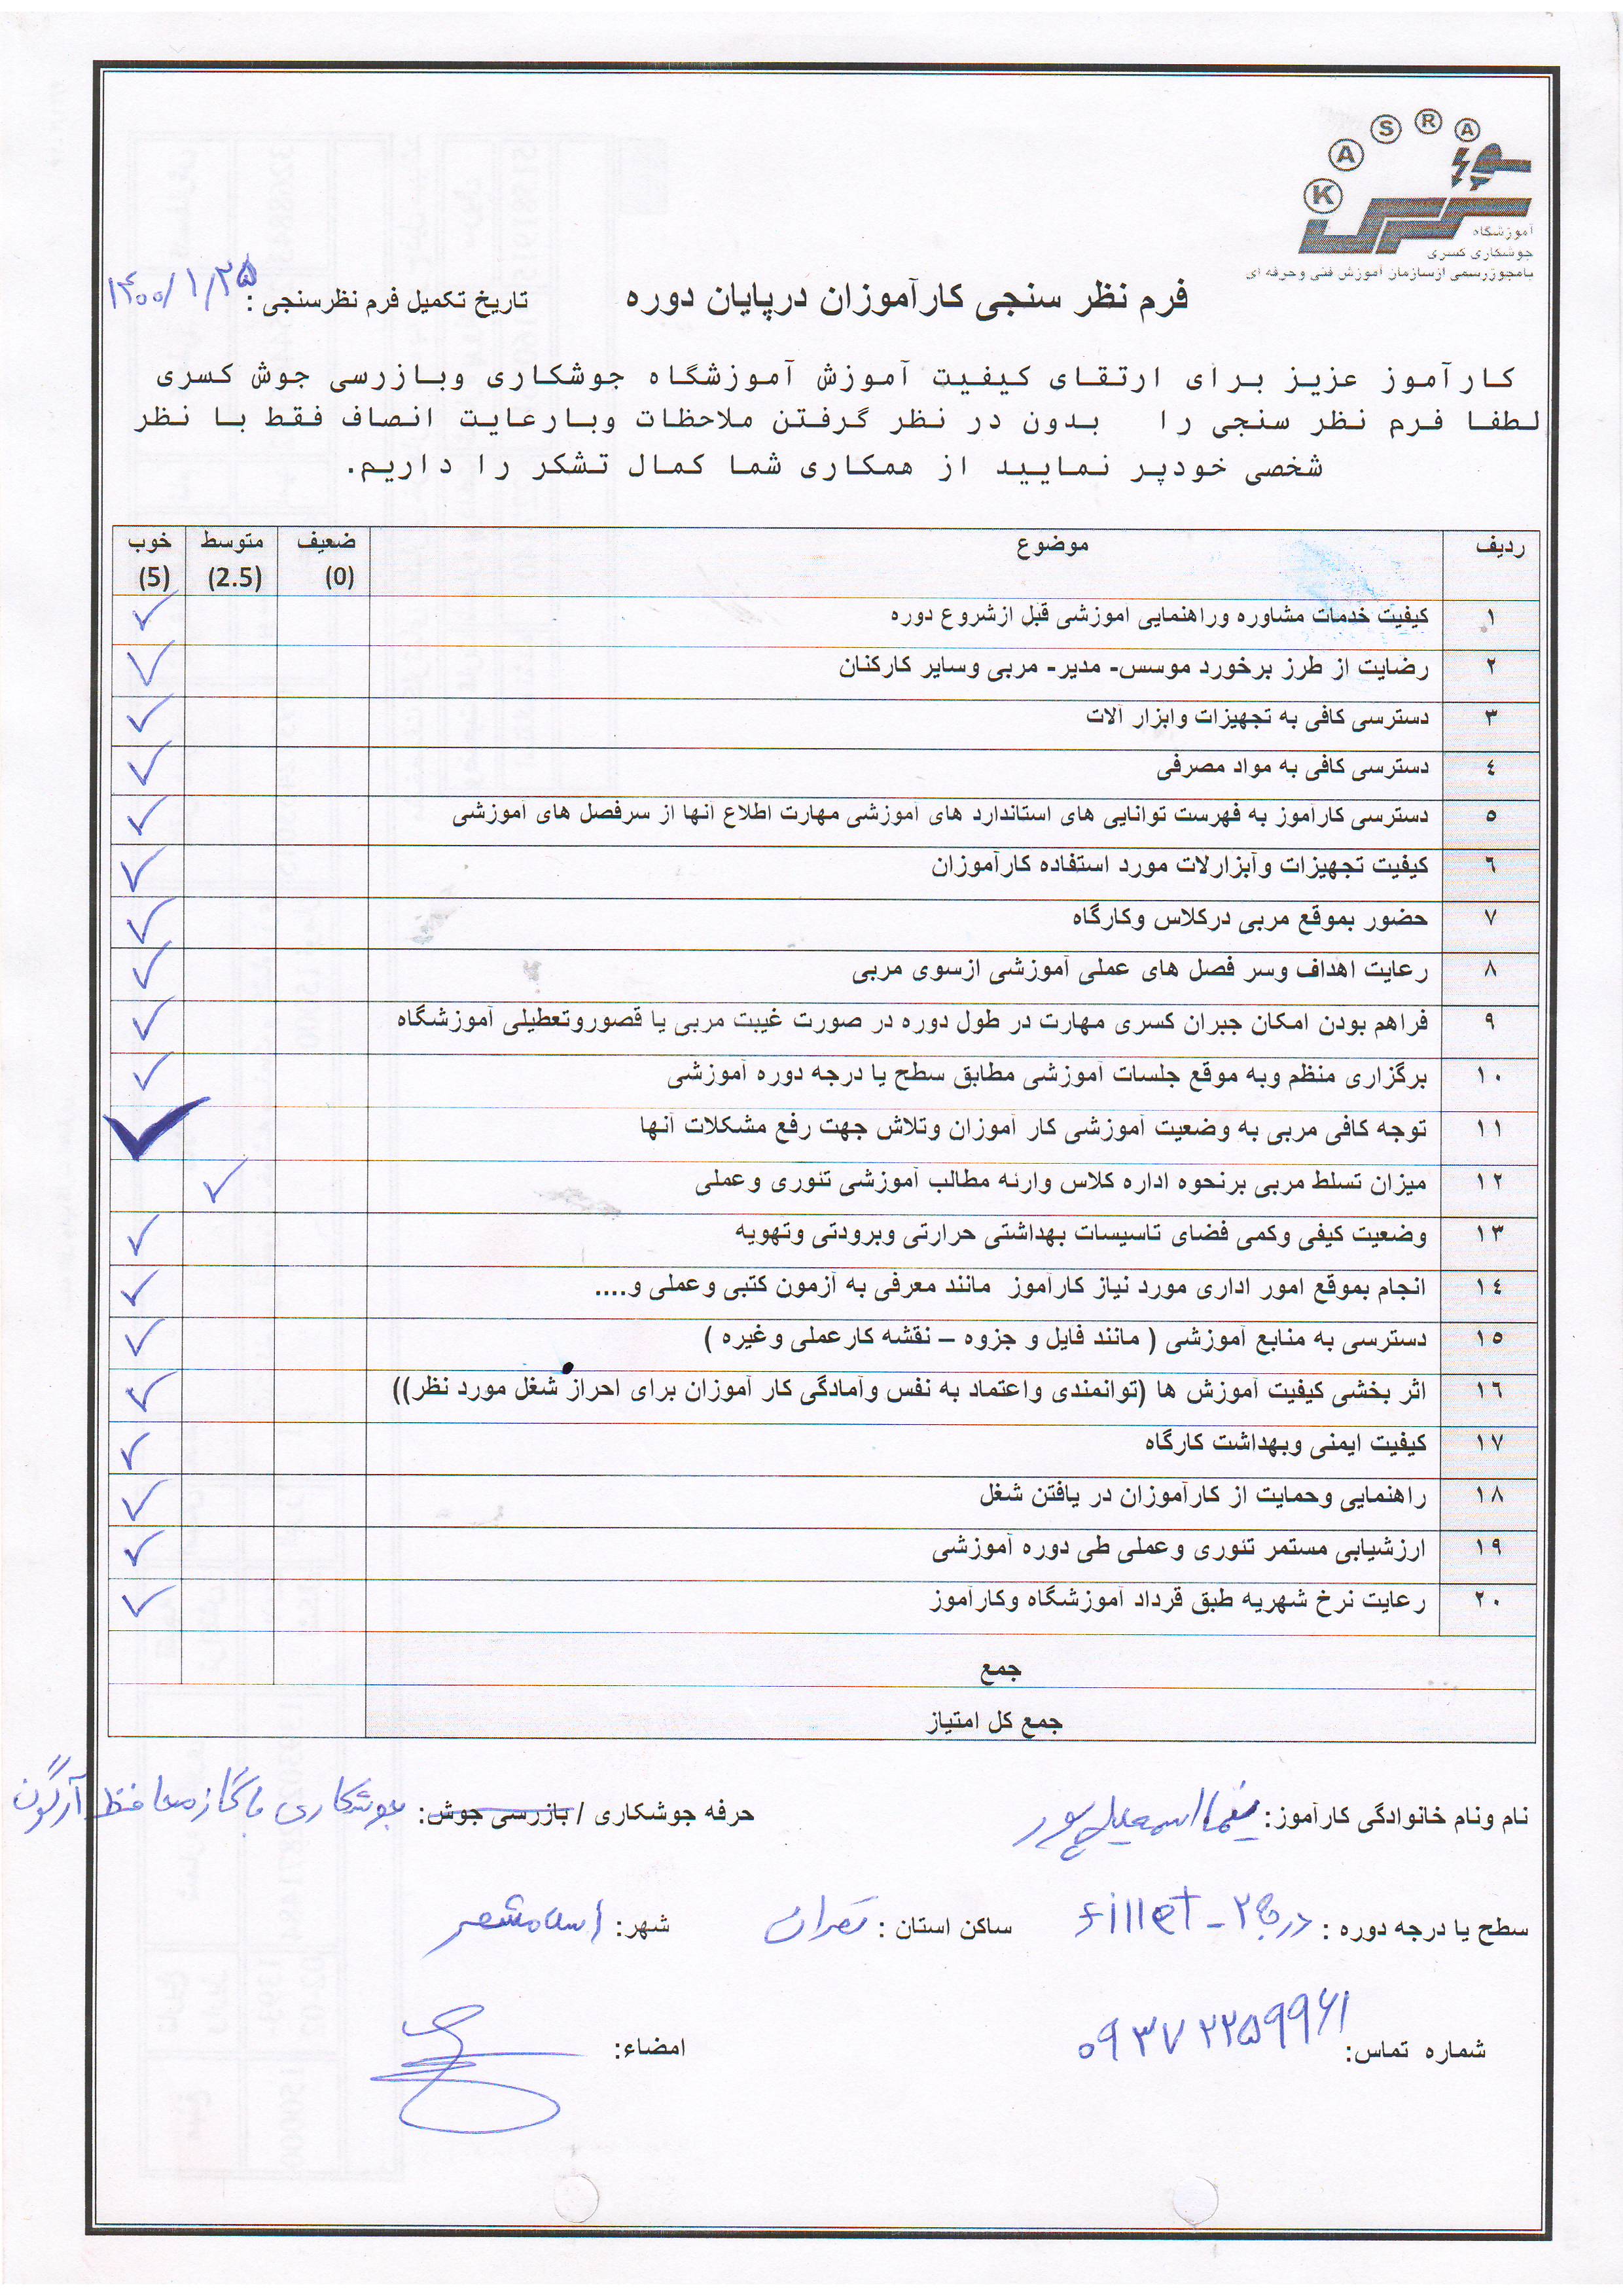 K A S R A
آموزشگاه
جوشکاری کسری
بامجوزرسمی ازسازمان آموزش فنی وحرفه ای
فرم نظر سنجی کارآموزان درپایان دوره
تاریخ تکمیل فرم نظرسنجی : ۱۴۰۰/۱/۲۵
کارآموز عزیز برای ارتقای کیفیت آموزش آموزشگاه جوشکاری وبازرسی جوش کسری
لطفا فرم نظر سنجی را بدون در نظر گرفتن ملاحظات وبارعایت انصاف فقط با نظر
شخصی خودپر نمایید از همکاری شما کمال تشکر را داریم.
ردیف موضوع ضعیف (0) متوسط (2.5) خوب (5)
۱ کیفیت خدمات مشاوره وراهنمایی اموزشی قبل ازشروع دوره ✓
۲ رضایت از طرز برخورد موسس- مدیر- مربی وسایر کارکنان ✓
۳ دسترسی کافی به تجهیزات وابزار آلات ✓
٤ دسترسی کافی به مواد مصرفی ✓
٥ دسترسی کارآموز به فهرست توانایی های استاندارد های آموزشی مهارت اطلاع آنها از سرفصل های آموزشی ✓
٦ کیفیت تجهیزات وآبزارلات مورد استفاده کارآموزان ✓
۷ حضور بموقع مربی درکلاس وکارگاه ✓
۸ رعایت اهداف وسر فصل های عملی آموزشی ازسوی مربی ✓
۹ فراهم بودن امکان جبران کسری مهارت در طول دوره در صورت غیبت مربی یا قصوروتعطیلی آموزشگاه ✓
۱۰ برگزاری منظم وبه موقع جلسات آموزشی مطابق سطح یا درجه دوره آموزشی ✓
۱۱ توجه کافی مربی به وضعیت آموزشی کار آموزان وتلاش جهت رفع مشکلات آنها ✓
۱۲ میزان تسلط مربی برنحوه اداره کلاس وارئه مطالب آموزشی تئوری وعملی ✓
۱۳ وضعیت کیفی وکمی فضای تاسیسات بهداشتی حرارتی وبرودتی وتهویه ✓
۱٤ انجام بموقع امور اداری مورد نیاز کارآموز مانند معرفی به آزمون کتبی وعملی و.... ✓
۱٥ دسترسی به منابع آموزشی ( مانند فایل و جزوه – نقشه کارعملی وغیره ) ✓
۱٦ اثر بخشی کیفیت آموزش ها (توانمندی واعتماد به نفس وآمادگی کار آموزان برای احراز شغل مورد نظر)) ✓
۱۷ کیفیت ایمنی وبهداشت کارگاه ✓
۱۸ راهنمایی وحمایت از کارآموزان در یافتن شغل ✓
۱۹ ارزشیابی مستمر تئوری وعملی طی دوره آموزشی ✓
۲۰ رعایت نرخ شهریه طبق قرداد آموزشگاه وکارآموز ✓
جمع
جمع کل امتیاز
نام ونام خانوادگی کارآموز: اسمعیل پور حرفه جوشکاری / بازرسی جوش: جوشکاری با گاز محافظ آرگون
سطح یا درجه دوره : درجه ۲ - fillet ساکن استان : تهران شهر: اسلامشهر
شماره تماس: ۰۹۳۷۲۲۵۹۹۶۱ امضاء: